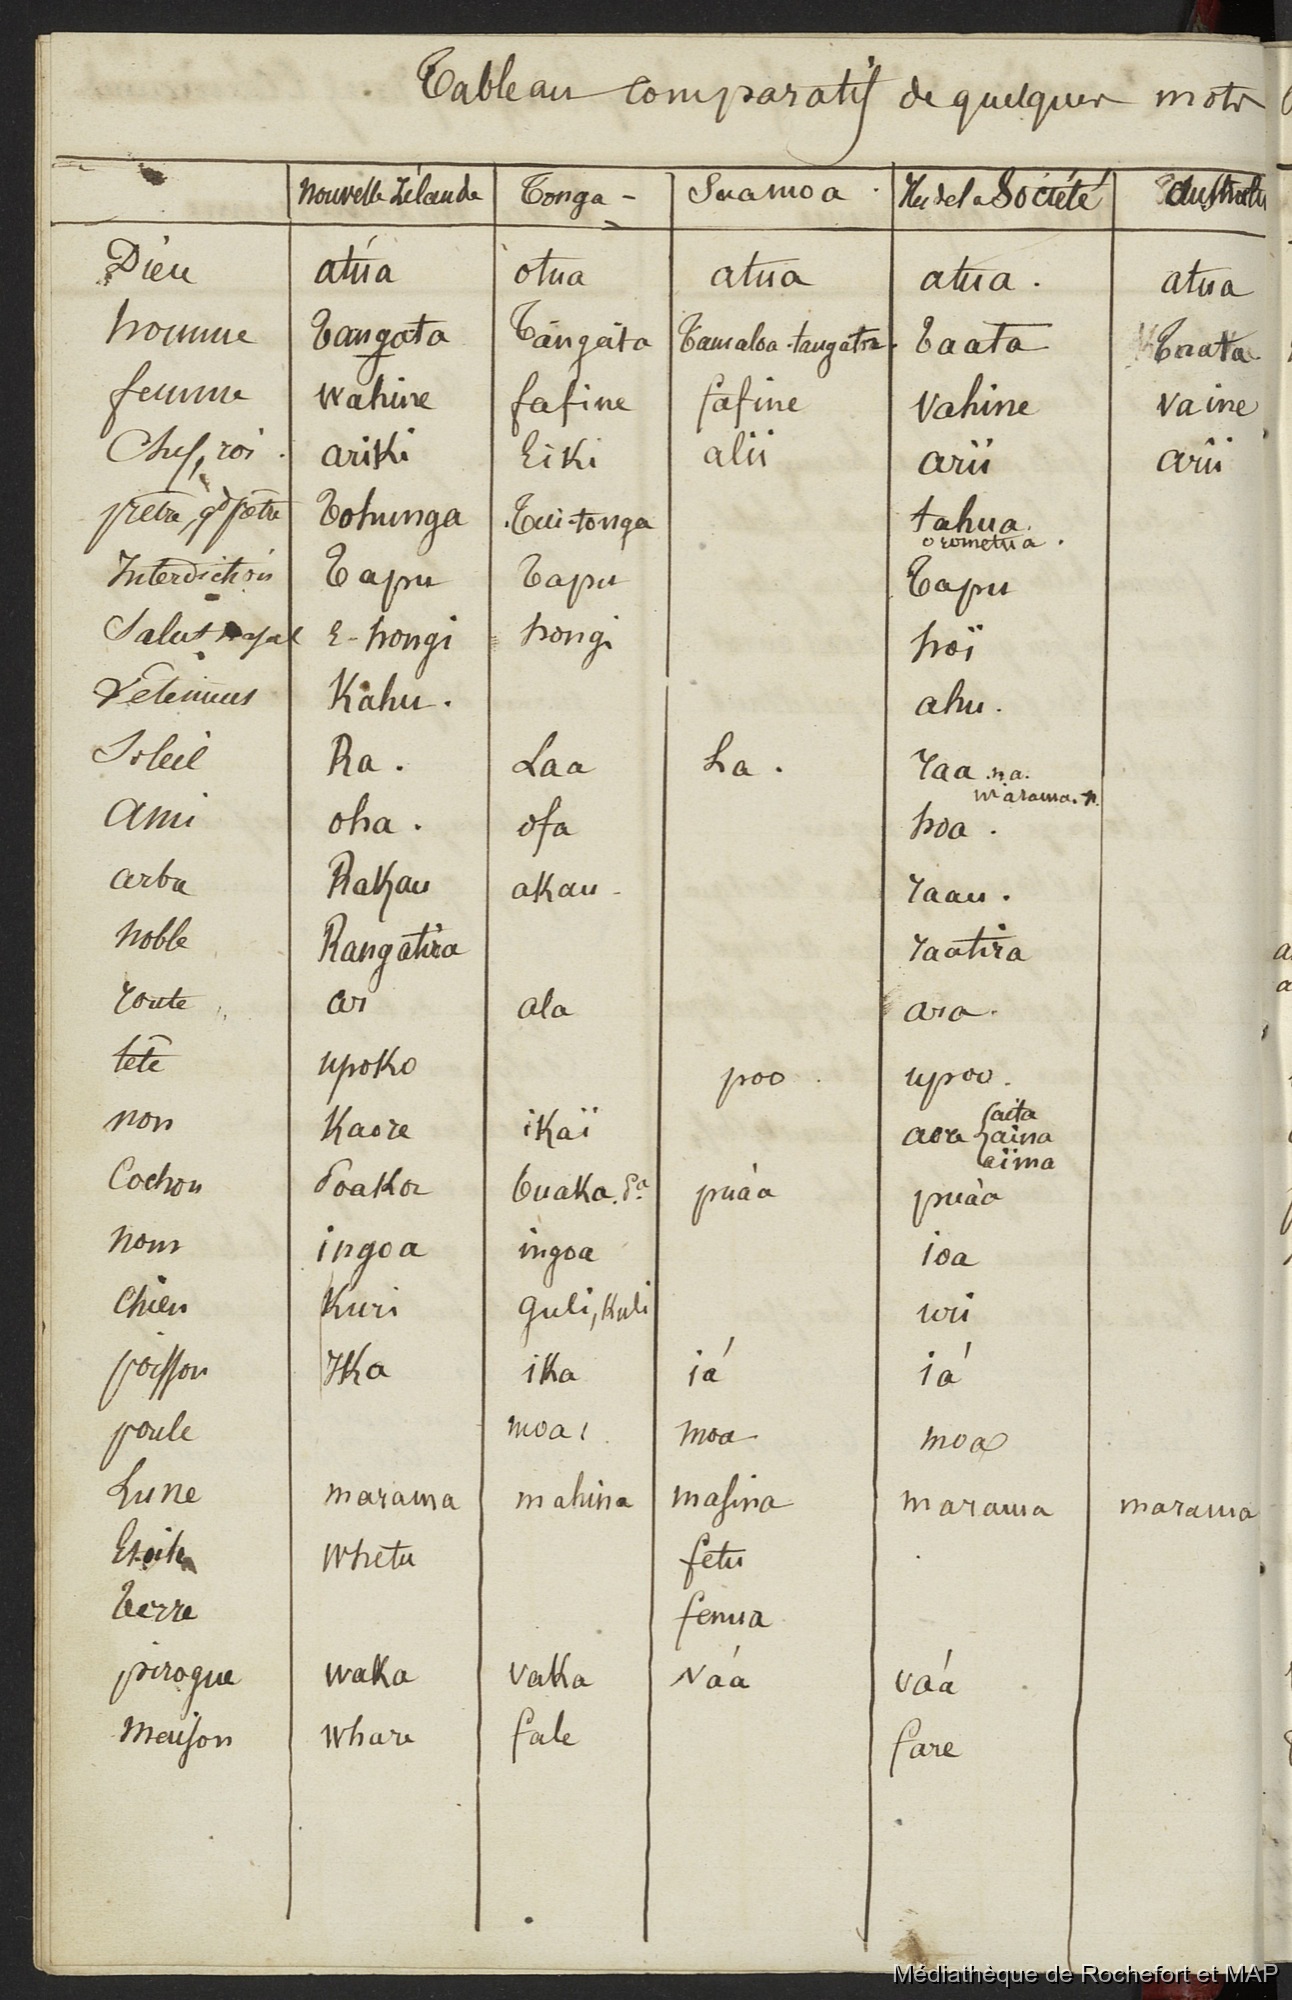 Tableau comparatif de quelques mots
Nouvelle Zélande Tonga - Suamoa. Iles de la Société Australes
Dieu atúa otua atua atua. atua
homme Tangata Tángáta Tamaloa-tangata. Taata Taata
femme wahine fafine fafine vahine vaine
Chef, roi. ariki Eiki alii arii arii
prêtre, gd prêtre Tohunga Tui-tonga tahua.
orometua.
Interdiction Tapu Tapu Tapu
Salut E-hongi hongi hoï
Vêtements Kahu. ahu.
Soleil Ra. Laa La. raa .na.
marama.
Ami oha. ofa hoa.
arbre Rakau akau- raau.
Noble Rangatira raatira
route ar ala ara.
tête upoko poo upoo.
non Kaore ikaï aore { aita
aina
aïma
Cochon Poaka buaka. puáa puáa
Nom ingoa ingoa ioa
Chien Kuri guli, Kuli urii
poisson Ika ika iá iá
poule moa moa moa
Lune marama mahina masina marama marama
Etoile Whetu fetu
Terre fenua
pirogue waka vaka vaá vaá
Maison Whare fale fare
Médiathèque de Rochefort et MAP